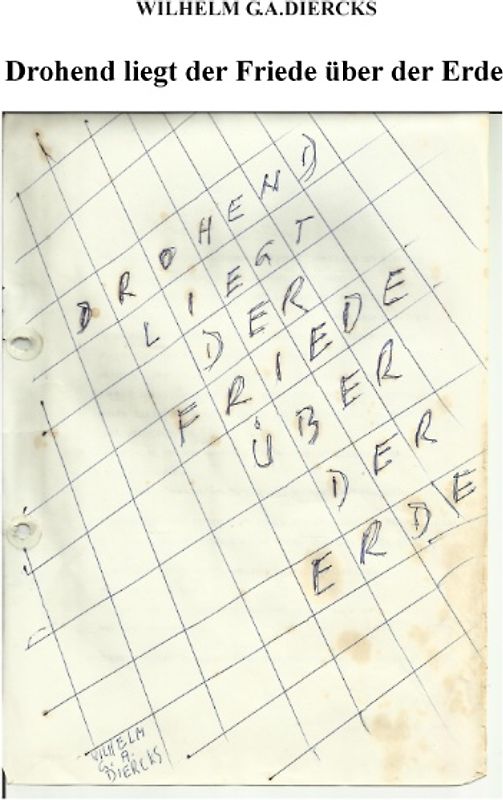 WILHELM G.A.DIERCKS
Drohend liegt der Friede über der Erde
DROHEND
LIEGT
DER
FRIEDE
ÜBER
DER
ERDE
WILHELM
G. A.
DIERCKS